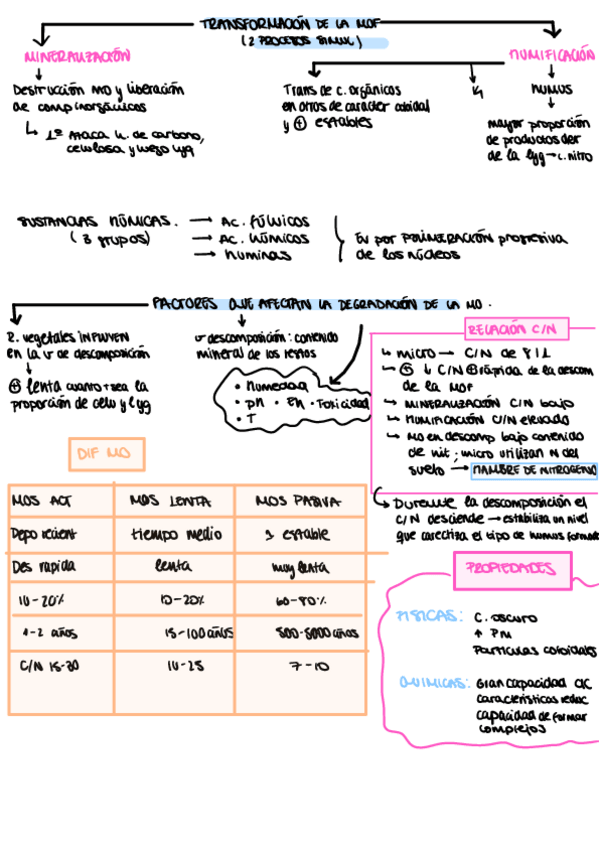 TRANSFORMACIÓN DE LA MOF
(2 PROCESOS SIMUL)
MINERALIZACIÓN
HUMIFICACIÓN
Destrucción MO y liberación
de comp inorgánicos
1º Ataca h. de carbono,
celulosa y luego lyg
Trans de c. orgánicos
en otros de caracter coloidal
y + estables
HUMUS
mayor proporción
de productos der
de la lyg → c. nitro
SUSTANCIAS HÚMICAS. → AC. FÚLVICOS
(3 grupos) → AC. HÚMICOS
→ HUMINAS
Ev por POLIMERACIÓN progresiva
de los núcleos
FACTORES QUE AFECTAN LA DEGRADACIÓN DE LA MO.
R. vegetales INFLUYEN
en la v de descomposición
+ lenta cuanto + sea la
proporción de celu y lyg
v descomposición: contenido
mineral de los restos
• Humedad
• pH • Eh • Toxicidad
• T
RELACIÓN C/N
micro → C/N de 8/1
↓ C/N + rápida de la descom
de la MOF
MINERALIZACIÓN C/N bajo
HUMIFICACIÓN C/N elevado
MO en descomp bajo contenido
de nit; micro utilizan N del
suelo → HAMBRE DE NITROGENO
Durante la descomposición el
C/N desciende → estabiliza un nivel
que carectiza el tipo de humus formado
DIF MO
MOS ACT MOS LENTA MOS PASIVA
Depo recient tiempo medio + estable
Des rapida lenta muy lenta
10-20% 10-20% 60-80%
1-2 años 15-100 años 500-5000 años
C/N 15-30 10-25 7-10
PROPIEDADES
FISICAS: C. oscuro
↑ PM
Partículas coloidales
QUIMICAS: Gran capacidad CIC
características reduc
capacidad de formar
complejos